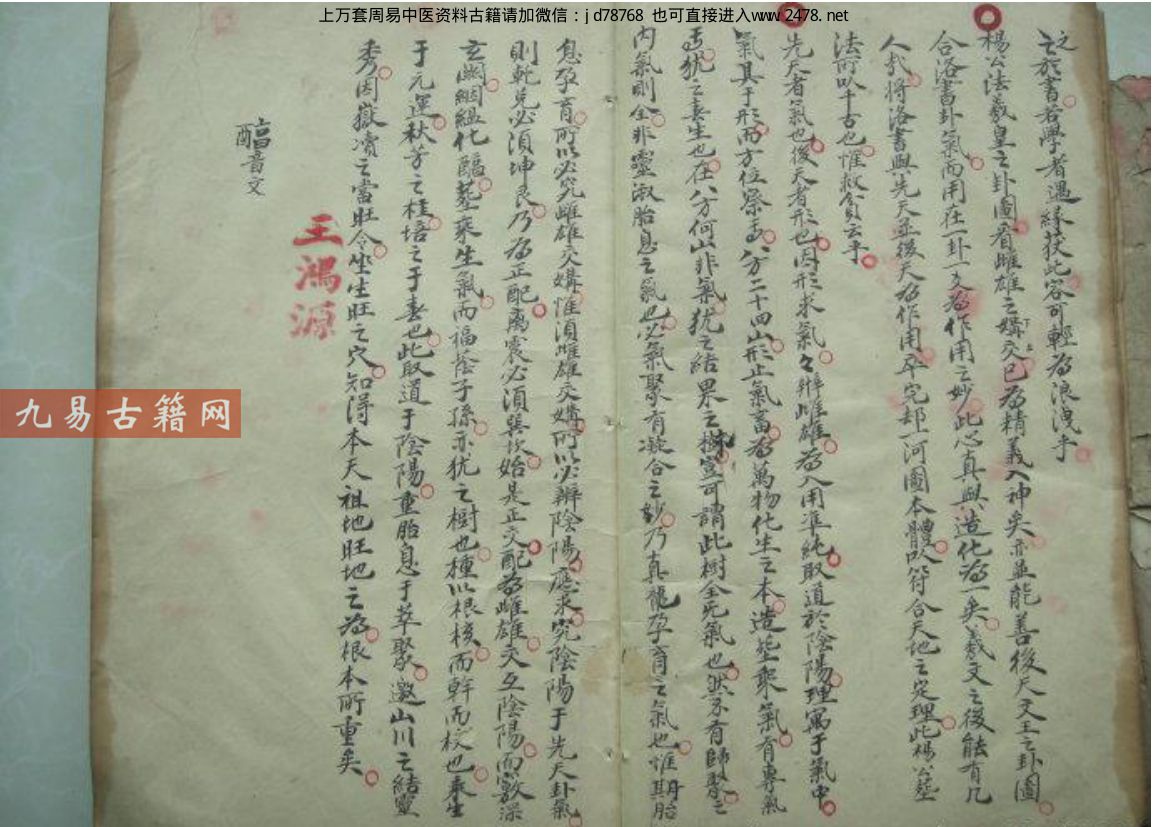 上万套周易中医资料古籍请加微信：jd78768 也可直接进入www.2478.net
之於書若學者遇緣获此容可輕為浪洩乎
楊公法羲皇之卦圖看雌雄之媾交已為精義入神矣亦並能善後天文王之卦圖
合洛書卦氣而用在一卦一爻為作用之妙此心真與造化為一矣羲文之後能有几
人哉將洛書與先天並後天為作用卒完却一河圖本體以符合天地之定理此楊公塟
法所以千古也惟救貧云乎
先天者氣也後天者形也因形求氣々辨雌雄為入用准純取道於陰陽理寓于氣中
氣具于形而方位察焉八方二十四山形止氣畜為萬物化生之本造塋乘氣有專氣
焉犹之春生也在八方何山非氣犹之結果之樹豈可謂此樹全死氣也然不有歸聚之
内氣則全非靈淑胎息之氣也必氣聚有凝合之妙乃真龍孕育之氣也惟期胎
息孕育所以必究雌雄交媾惟須雌雄交媾所以必辨陰陽應求究陰陽于先天卦氣
則乾兑必須坤艮乃為正配离震必須巽坎始是正交配為雌雄交互陰陽而敷深
玄闢絪緼化醞塟乘生氣而福蔭子孫亦犹之樹也種以根核而幹而枝也乘生
于元運秋芳之桂培之于春也此取道于陰陽重胎息于萃聚邀山川之結靈
秀因嶽凟之當旺令坐生旺之穴知得本天祖地旺地之為根本所重矣
音文
王鴻源
九易古籍网